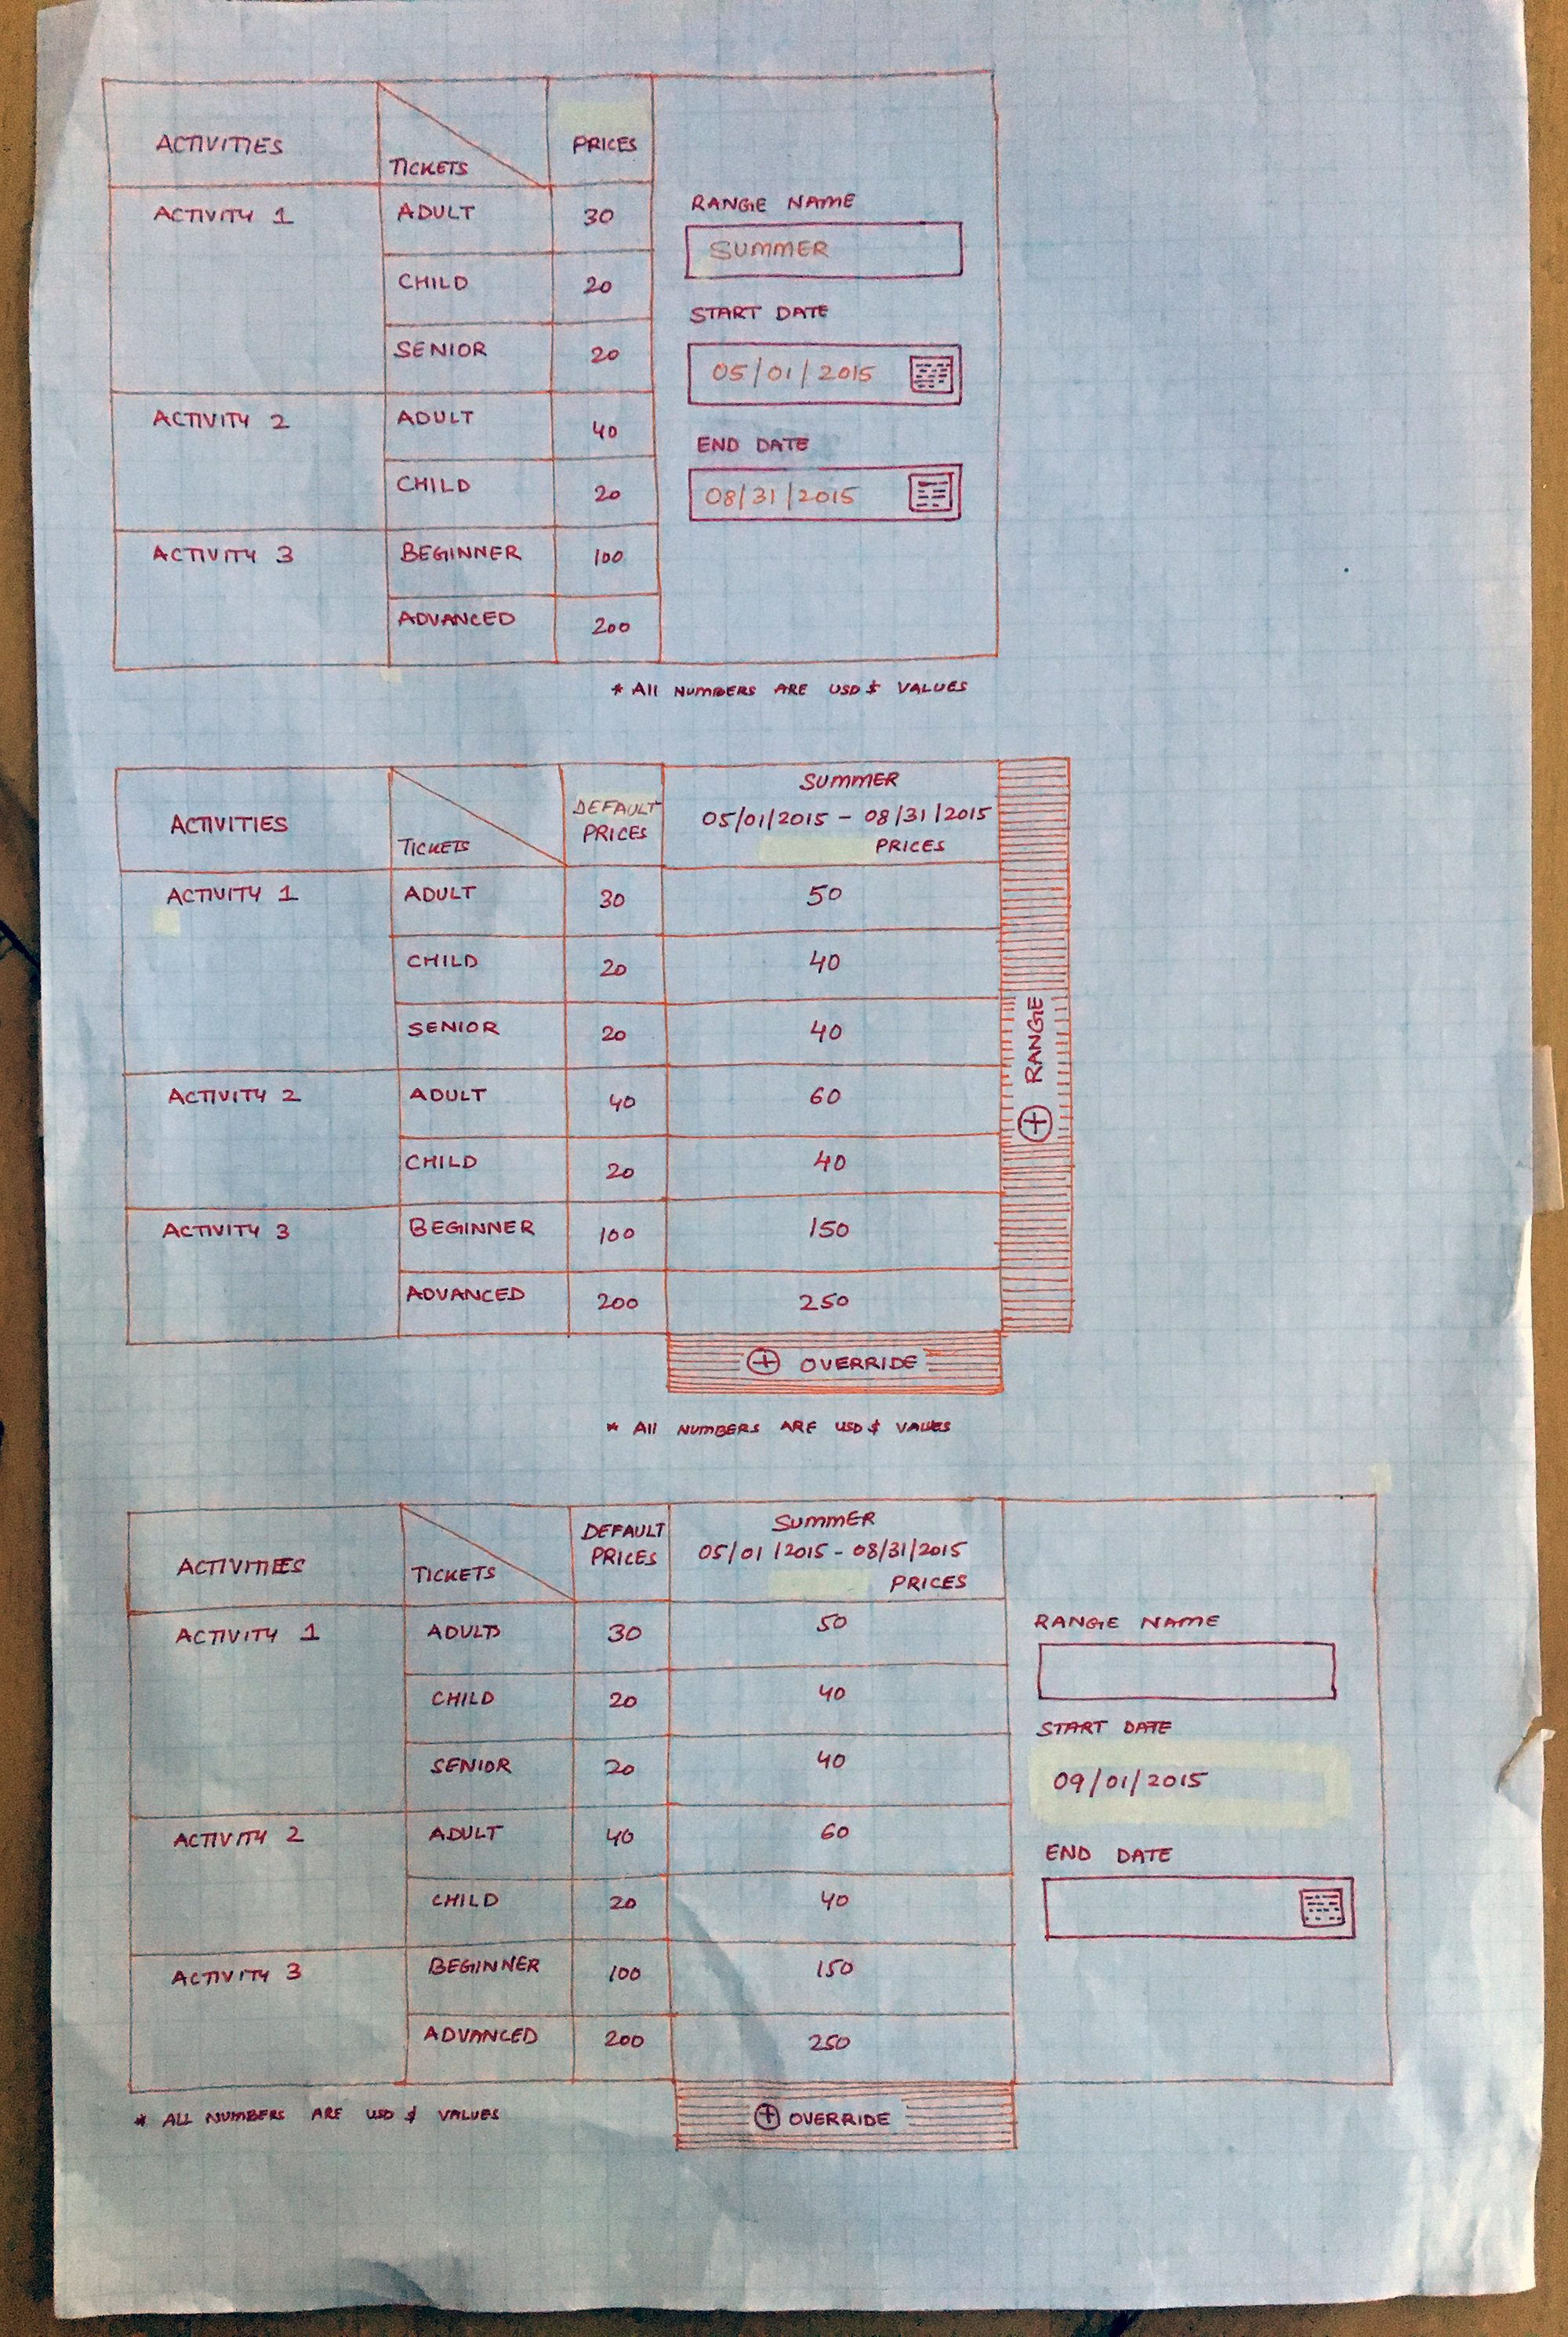 ACTIVITIES TICKETS PRICES
RANGE NAME
ACTIVITY 1 ADULT 30
SUMMER
CHILD 20
START DATE
SENIOR 20
05/01/2015
ACTIVITY 2 ADULT 40
END DATE
CHILD 20
08/31/2015
ACTIVITY 3 BEGINNER 100
ADVANCED 200
* All NUMBERS ARE USD $ VALUES
SUMMER
05/01/2015 - 08/31/2015
ACTIVITIES TICKETS DEFAULT PRICES PRICES
ACTIVITY 1 ADULT 30 50
CHILD 20 40
SENIOR 20 40
RANGE
ACTIVITY 2 ADULT 40 60
CHILD 20 40
ACTIVITY 3 BEGINNER 100 150
ADVANCED 200 250
+ OVERRIDE
* All NUMBERS ARE USD $ VALUES
SUMMER
05/01/2015 - 08/31/2015
ACTIVITIES TICKETS DEFAULT PRICES PRICES
ACTIVITY 1 ADULTS 30 50
RANGE NAME
CHILD 20 40
START DATE
SENIOR 20 40
09/01/2015
ACTIVITY 2 ADULT 40 60
END DATE
CHILD 20 40
ACTIVITY 3 BEGINNER 100 150
ADVANCED 200 250
* ALL NUMBERS ARE USD $ VALUES
+ OVERRIDE